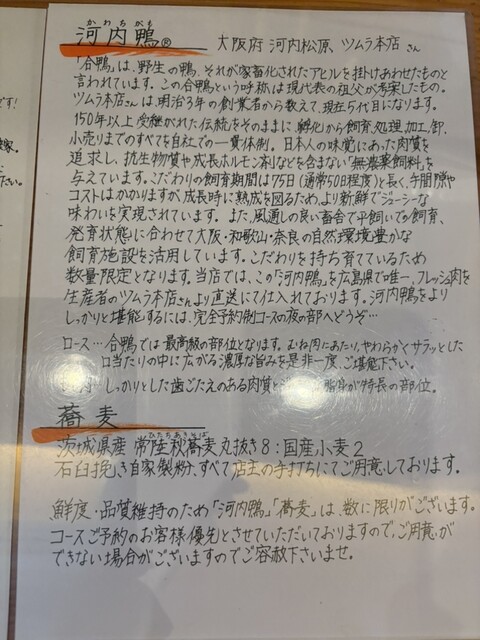 かわちがも
河内鴨® 大阪府 河内松原、ツムラ本店さん
「合鴨」は、野生の鴨、それが家畜化されたアヒルを掛けあわせたものと
言われています。この合鴨という呼称は現代表の祖父が考案したもの。
ツムラ本店さんは、明治3年の創業者から数えて、現在5代目になります。
150年以上受継がれた伝統をそのままに、孵化から飼育、処理、加工、卸、
小売りまでのすべてを自社での一貫体制。日本人の味覚にあった肉質を
追求し、抗生物質や成長ホルモン剤などを含まない"無薬飼料"を
与えています。こだわりの飼育期間は75日(通常50日程度)と長く、手間隙や
コストはかかりますが、成長時に熟成を図るため、より新鮮でジューシーな
味わいを実現されています。また、風通しの良い畜舎で平飼いでの飼育、
発育状態に合わせて大阪・和歌山・奈良の自然環境豊かな
飼育施設を活用しています。こだわりを持ち育てているため
数量限定となります。当店では、この「河内鴨」を広島県で唯一、フレッシュ肉を
生産者のツムラ本店さんより直送にて仕入れております。河内鴨をより
しっかりと堪能するには、完全予約制コースの夜の部へどうぞ…
ロース… 合鴨では最高級の部位となります。むね肉にあたり、やわらかくサラッとした
口当たりの中に広がる濃厚な旨みを是非一度、ご堪能下さい。
しっかりとした歯ごたえのある肉質と 脂身が特長の部位。
蕎麦
ひたちあきそば
茨城県産 常陸秋蕎麦丸抜き8:国産小麦2
石臼挽き自家製粉、すべて店主の手打ちにてご用意しております。
鮮度・品質維持のため「河内鴨」「蕎麦」は、数に限りがございます。
コースご予約のお客様優先とさせていただいておりますので、ご用意が
できない場合がございますのでご容赦下さいませ。